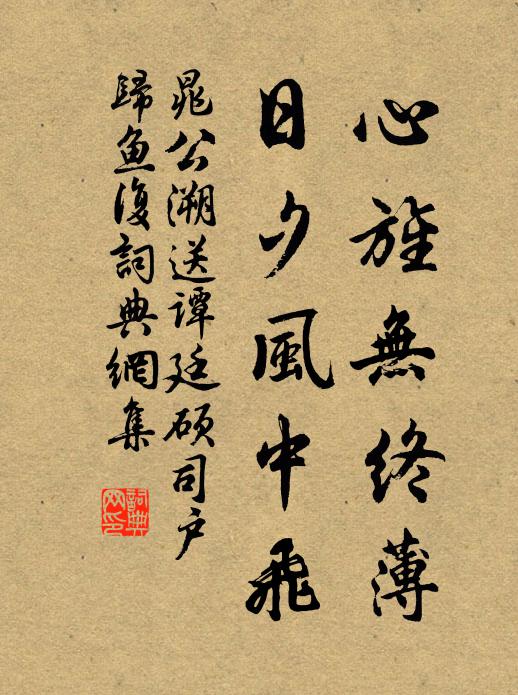 心旌無終薄
日夕風中飛
晁公溯送譚廷碩司戶
歸魚復詞典網集
詞典
网印